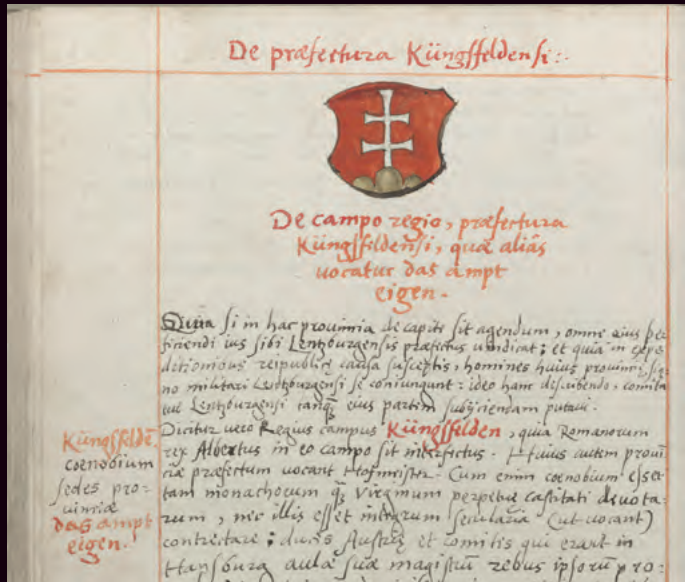 De præfectura Küngsfeldensi:
De campo regio, præfectura
Küngsfeldensi, quæ aliàs
vocatur das ampt
eigen.
Quia si in hac prouincia de capite sit agendum, omne eius per
ficiendi ius sibi Lentzburgensis præfectus uendicat; et quia in expe
ditionibus reipublicę causa susceptis, homines huius prouincię sig
no militari Lentzburgensi se coniungunt: ideo hanc describendo, comita
tui Lentzburgensi tanq̃ eius partem subijciendam putaui.
Dicitur uero Regius campus Küngsfelden, quia Romanorum
rex Albertus in eo campo sit interfectus. Huius autem prouin
ciæ præfectum vocant Hofmeister. Cum enim coenobium esset
tam monachorum q̃ Virginum perpetuę castitati deuota
rum, nec illis esset integrum secularia (ut uocant)
contrectare; duces Austrię et comitis qui erant in
Hapsburg aulæ suæ magistrũ rebus ipsorũ pro-
Küngsfeldẽ
coenobium
sedes pro-
uinciæ
das ampt
eigen.